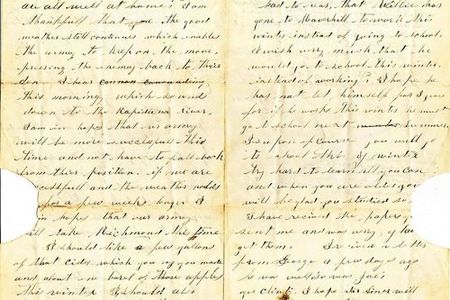 are all well at home? I am
thankfull that you the good
weather still continues which enables
the army to keep on the move,
pressing the enemy back to their
Den. I hear cannon cannonading
this morning which sound
down to the Rapidan river,
I am in hopes that our army
will be more successfull this
time and not have to fall back
from their position if we are
successfull and the weather holds
for a few week longer I
in hopes that our army
will take Richmond this time
I should like a few gallons
of that Cider which you say you made
and about one barel of those apples
this winter I should also
has gone to Haverhill to work this
winter instead of going to school
I wish very much that he
would go to school this winter
instead of working? I hope he
has not let himself for I
for if he works this winter he must
go to school next summer,
I suppose of course you will go
to school this winter
try hard to learn all you can
and when you are older you
will be glad you studied so
I have recived the papers you
sent me and was very glad to
get them. I recived a letter
from George a few days ago
he was well so was Joe